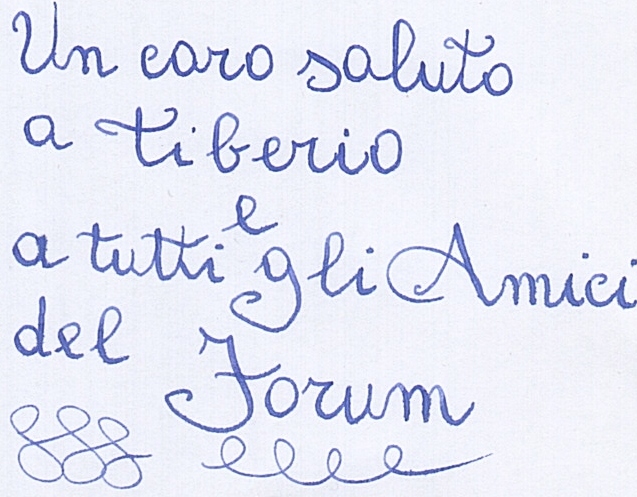 Un caro saluto
a Tiberio
e
a tutti gli Amici
del Forum